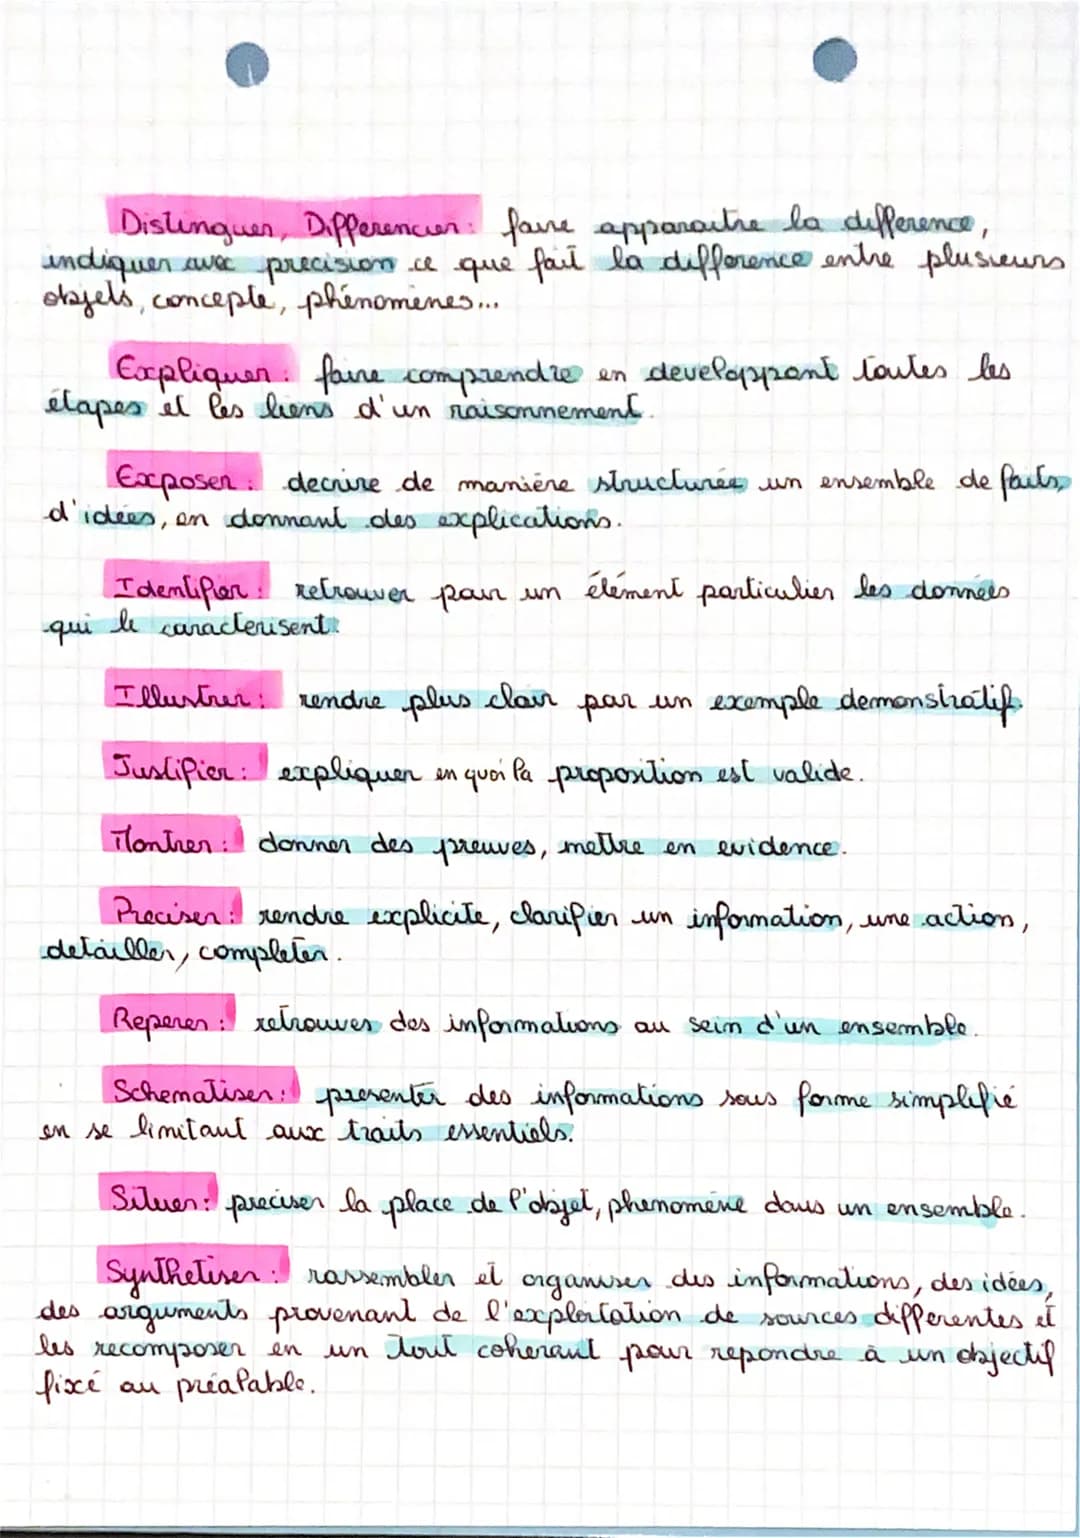 Distinguer, Differencier : faire apparaitre la difference,
indiquer avec precision ce que fait la difference entre plusieurs
objets, concepte, phénomenes...
Expliquer : faire comprendre en developpant toutes les
étapes et les liens d'un raisonnement.
Exposer : decrire de maniére structurée un ensemble de faits,
d'idées, en donnant des explications.
Identifier : retrouver pour un élément particulier les données
qui le caracterisent.
Illustrer : rendre plus clair par un exemple demonstratif.
Justifier : expliquer en quoi la proposition est valide.
Montrer : donner des preuves, mettre en evidence.
Preciser : rendre explicite, clarifier un information, une action,
detailler, completer.
Reperer : retrouves des informations au sein d'un ensemble.
Schematiser : presenter des informations sous forme simplifié
en se limitant aux traits essentiels.
Situer : preciser la place de l'objet, phenoméne dans un ensemble.
Synthetiser : rassembler et organiser des informations, des idées,
des arguments provenant de l'exploitation de sources differentes et
les recomposer en un tout coherant pour repondre à un objectif
fixé au préalable.